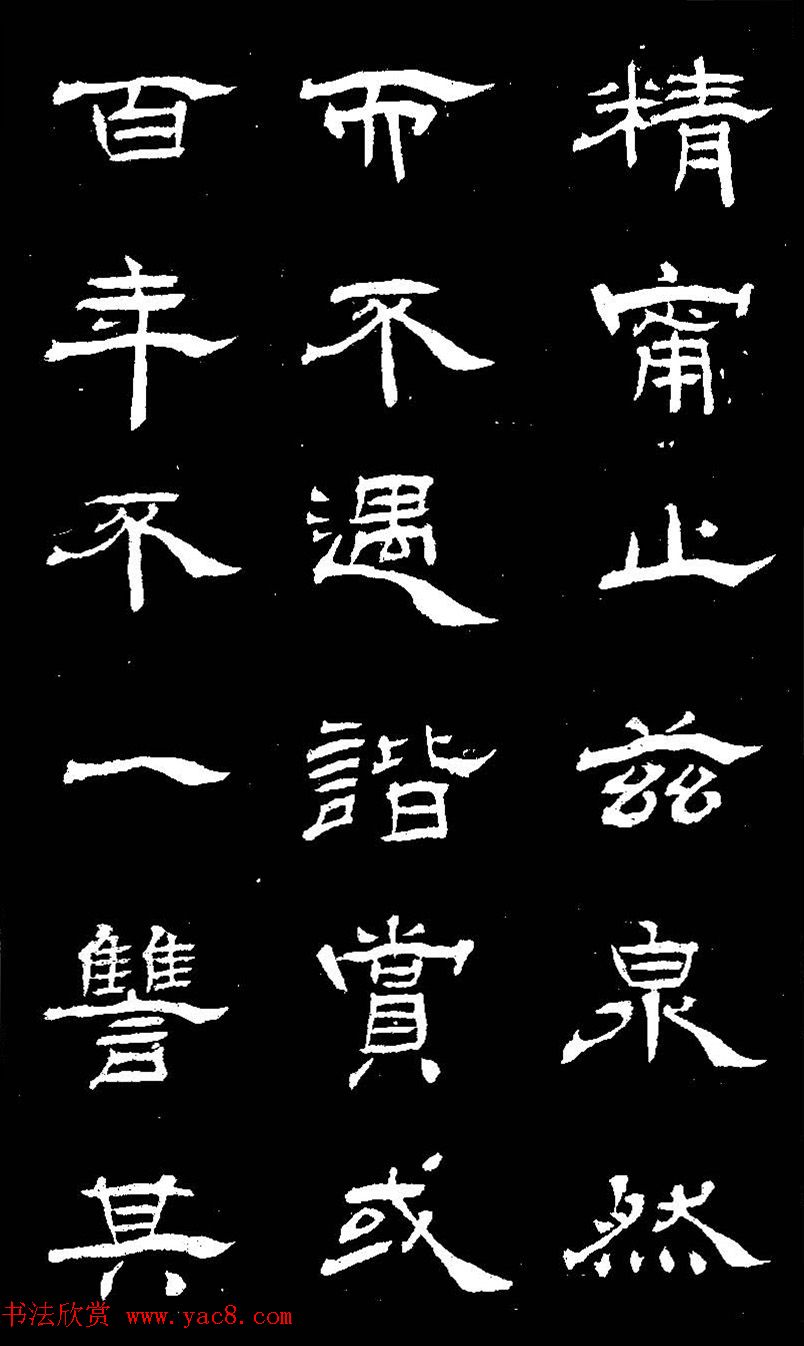 精甯止兹泉然
而不遇諧賞或
百年不一讐其
书法欣赏 www.yac8.com